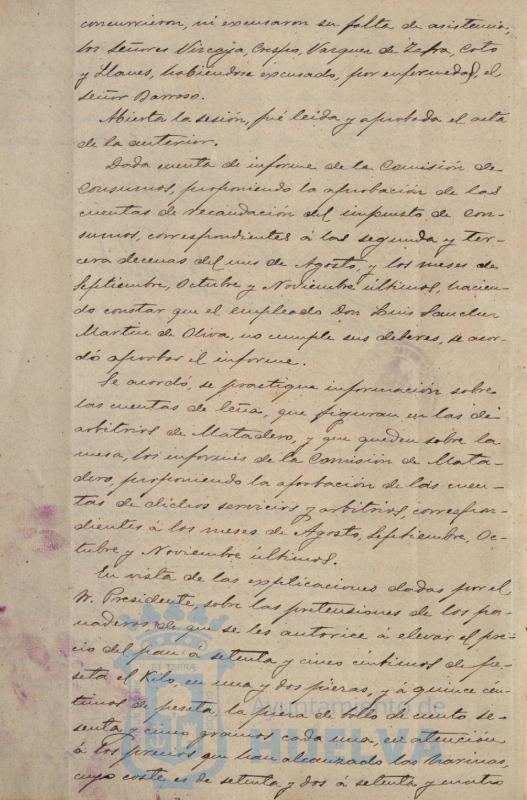 concurrieron, ni excusaron su falta de asistencia,
los Señores Vizcaya, Crespo, Vazquez de Zafra, Coto
y Llanes, habiendose excusado, por enfermedad, el
Señor Barroso.
Abierta la sesión, fué leida y aprobada el acta
de la anterior.
Dada cuenta de informe de la Comisión de
Consumos, proponiendo la aprobación de las
cuentas de recaudación del impuesto de con-
sumos, correspondientes á las segunda y ter-
cera decenas del mes de Agosto, y los meses de
Septiembre, Octubre y Noviembre últimos, hacien-
do constar que el empleado Don Luis Sanchez
Martin de Oliva, no cumple sus deberes, se acor-
dó aprobar el informe.
Se acordó, se practique información sobre
las cuentas de leña, que figuran en las de
arbitrios de Matadero, y que queden sobre la
mesa, los informes de la Comisión de Mata-
dero, proponiendo la aprobación de las cuen-
tas de dichos servicios y arbitrios, correspon-
dientes á los meses de Agosto, Septiembre, Oc-
tubre y Noviembre últimos.
En vista de las explicaciones dadas por el
Sr. Presidente, sobre las pretensiones de los pa-
naderos de que se les autorice á elevar el pre-
cio del pan á setenta y cinco céntimos de pe-
seta el Kilo, en una y dos piezas, y á quince cén-
timos de peseta, la pieza de bollo de ciento se-
senta y cinco gramos cada una, en atención
á los precios que han alcanzado las harinas,
cuyo coste es de setenta y dos á setenta y cuatro
Ayuntamiento de
HUELVA